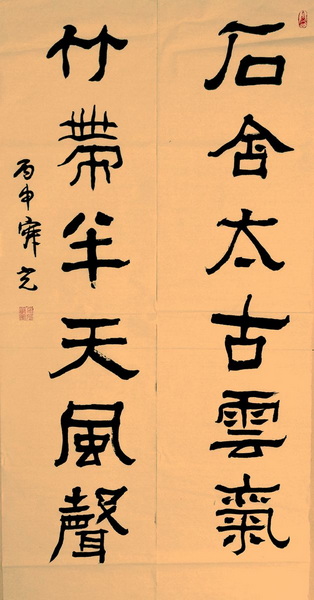 石含太古雲氣
竹帶半天風聲
丙申